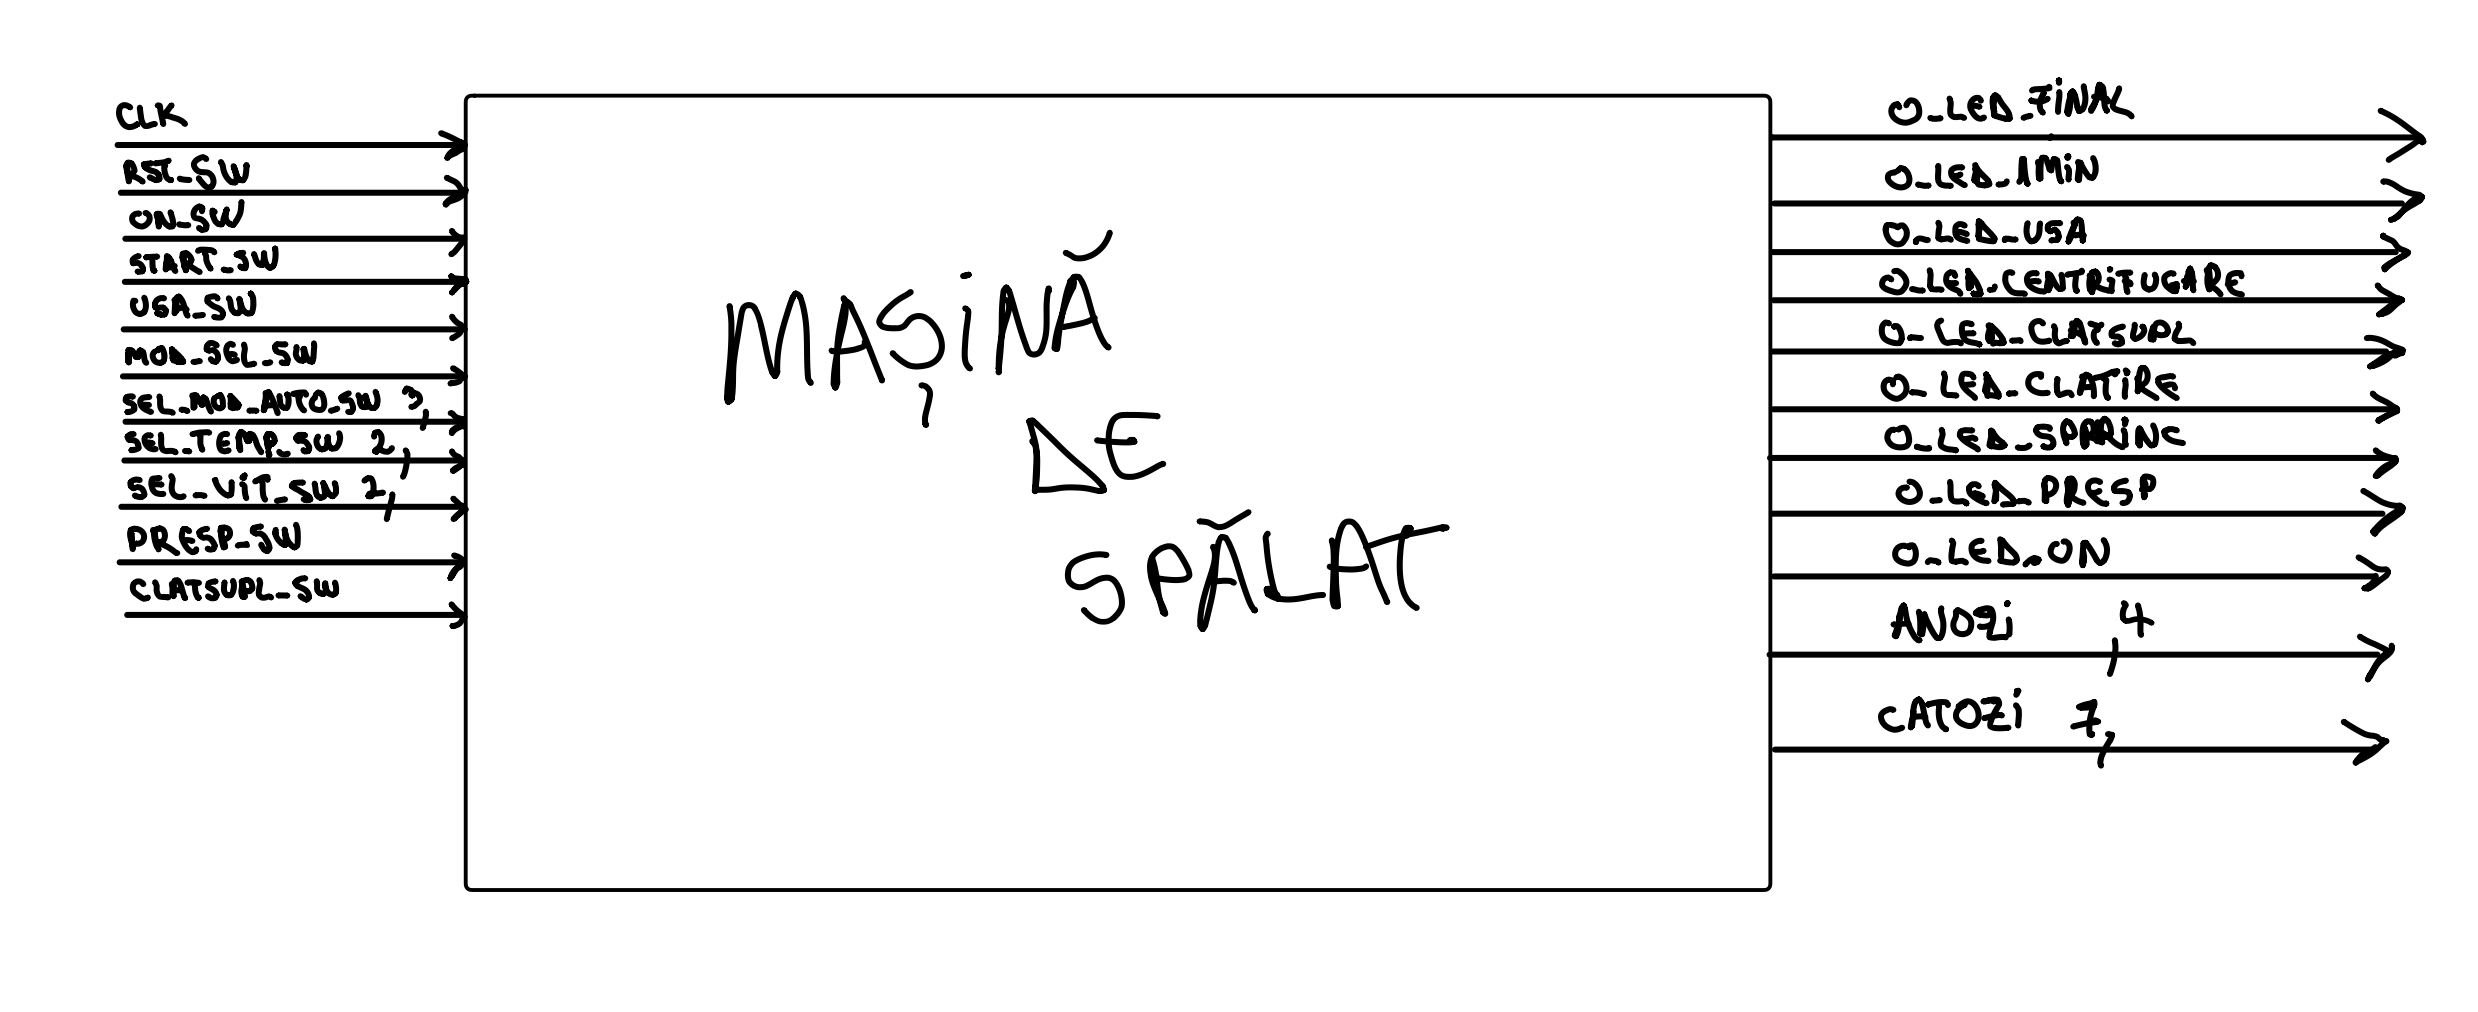 CLK
RST_SW
ON_SW
START_SW
USA_SW
MOD_SEL_SW
SEL_MOD_AUTO_SW 3
SEL_TEMP_SW 2
SEL_VIT_SW 2
PRESP_SW
CLATSUPL_SW
MAȘINĂ
DE
SPĂLAT
O_LED_FINAL
O_LED_1MIN
O_LED_USA
O_LED_CENTRIFUGARE
O_LED_CLATSUPL
O_LED_CLATIRE
O_LED_SPPRINC
O_LED_PRESP
O_LED_ON
ANOZI 4
CATOZI 7